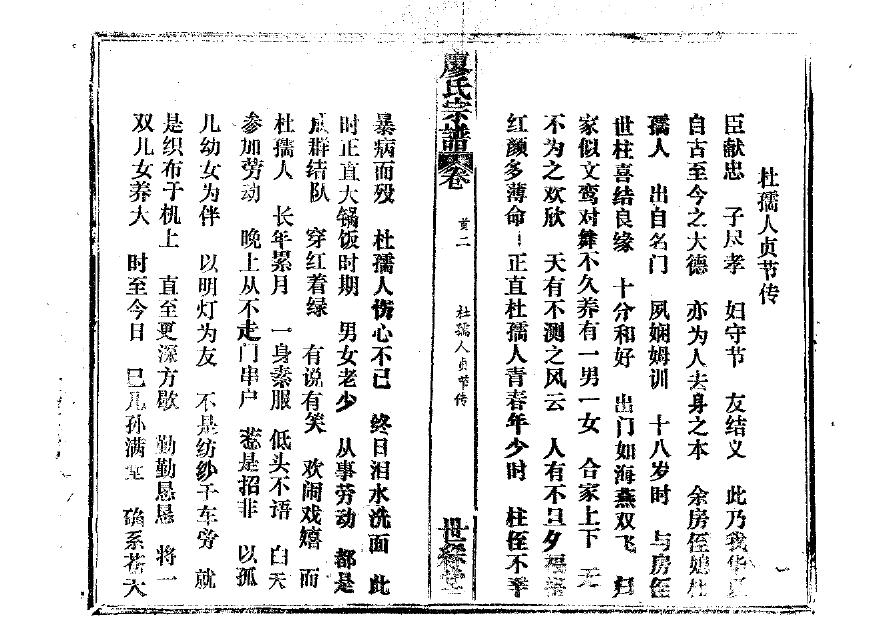 杜孺人贞节传
臣献忠 子尽孝 妇守节 友结义 此乃我华夏
自古至今之大德 亦为人去身之本 余房侄媳杜
孺人 出自名门 夙娴姆训 十八岁时 与房侄
世柱喜结良缘 十分和好 出门如海燕双飞 归
家似文鸾对舞不久养有一男一女 合家上下 无
不为之欢欣 天有不测之风云 人有不旦夕祸
红颜多薄命！正直杜孺人青春年少时 柱侄不幸
廖氏宗谱 卷
黄二
杜孺人贞节传
世䌽堂
暴病而殁 杜孺人伤心不已 终日泪水洗面 此
时正直大锅饭时期 男女老少 从事劳动 都是
成群结队 穿红着绿 有说有笑 欢闹戏嬉 而
杜孺人 长年累月 一身素服 低头不语 白天
参加劳动 晚上从不走门串户 惹是招非 以孤
儿幼女为伴 以明灯为友 不是纺纱于车旁 就
是织布于机上 直至更深方歇 勤勤恳恳 将一
双儿女养大 时至今日 已儿孙满堂 确系苍天